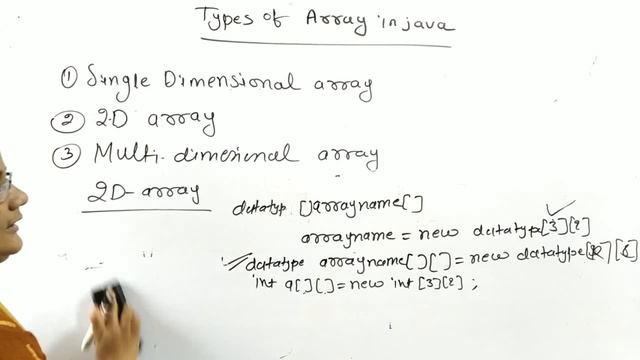 Types of Array in java
① Single Dimensional array
② 2-D array
③ Multi-dimesional array
2D-array
datatyp []arrayname[]
arrayname = new datatype[3][2]
datatype arrayname[][] = new datatype[R][C]
int a[][] = new int [3][2] ;